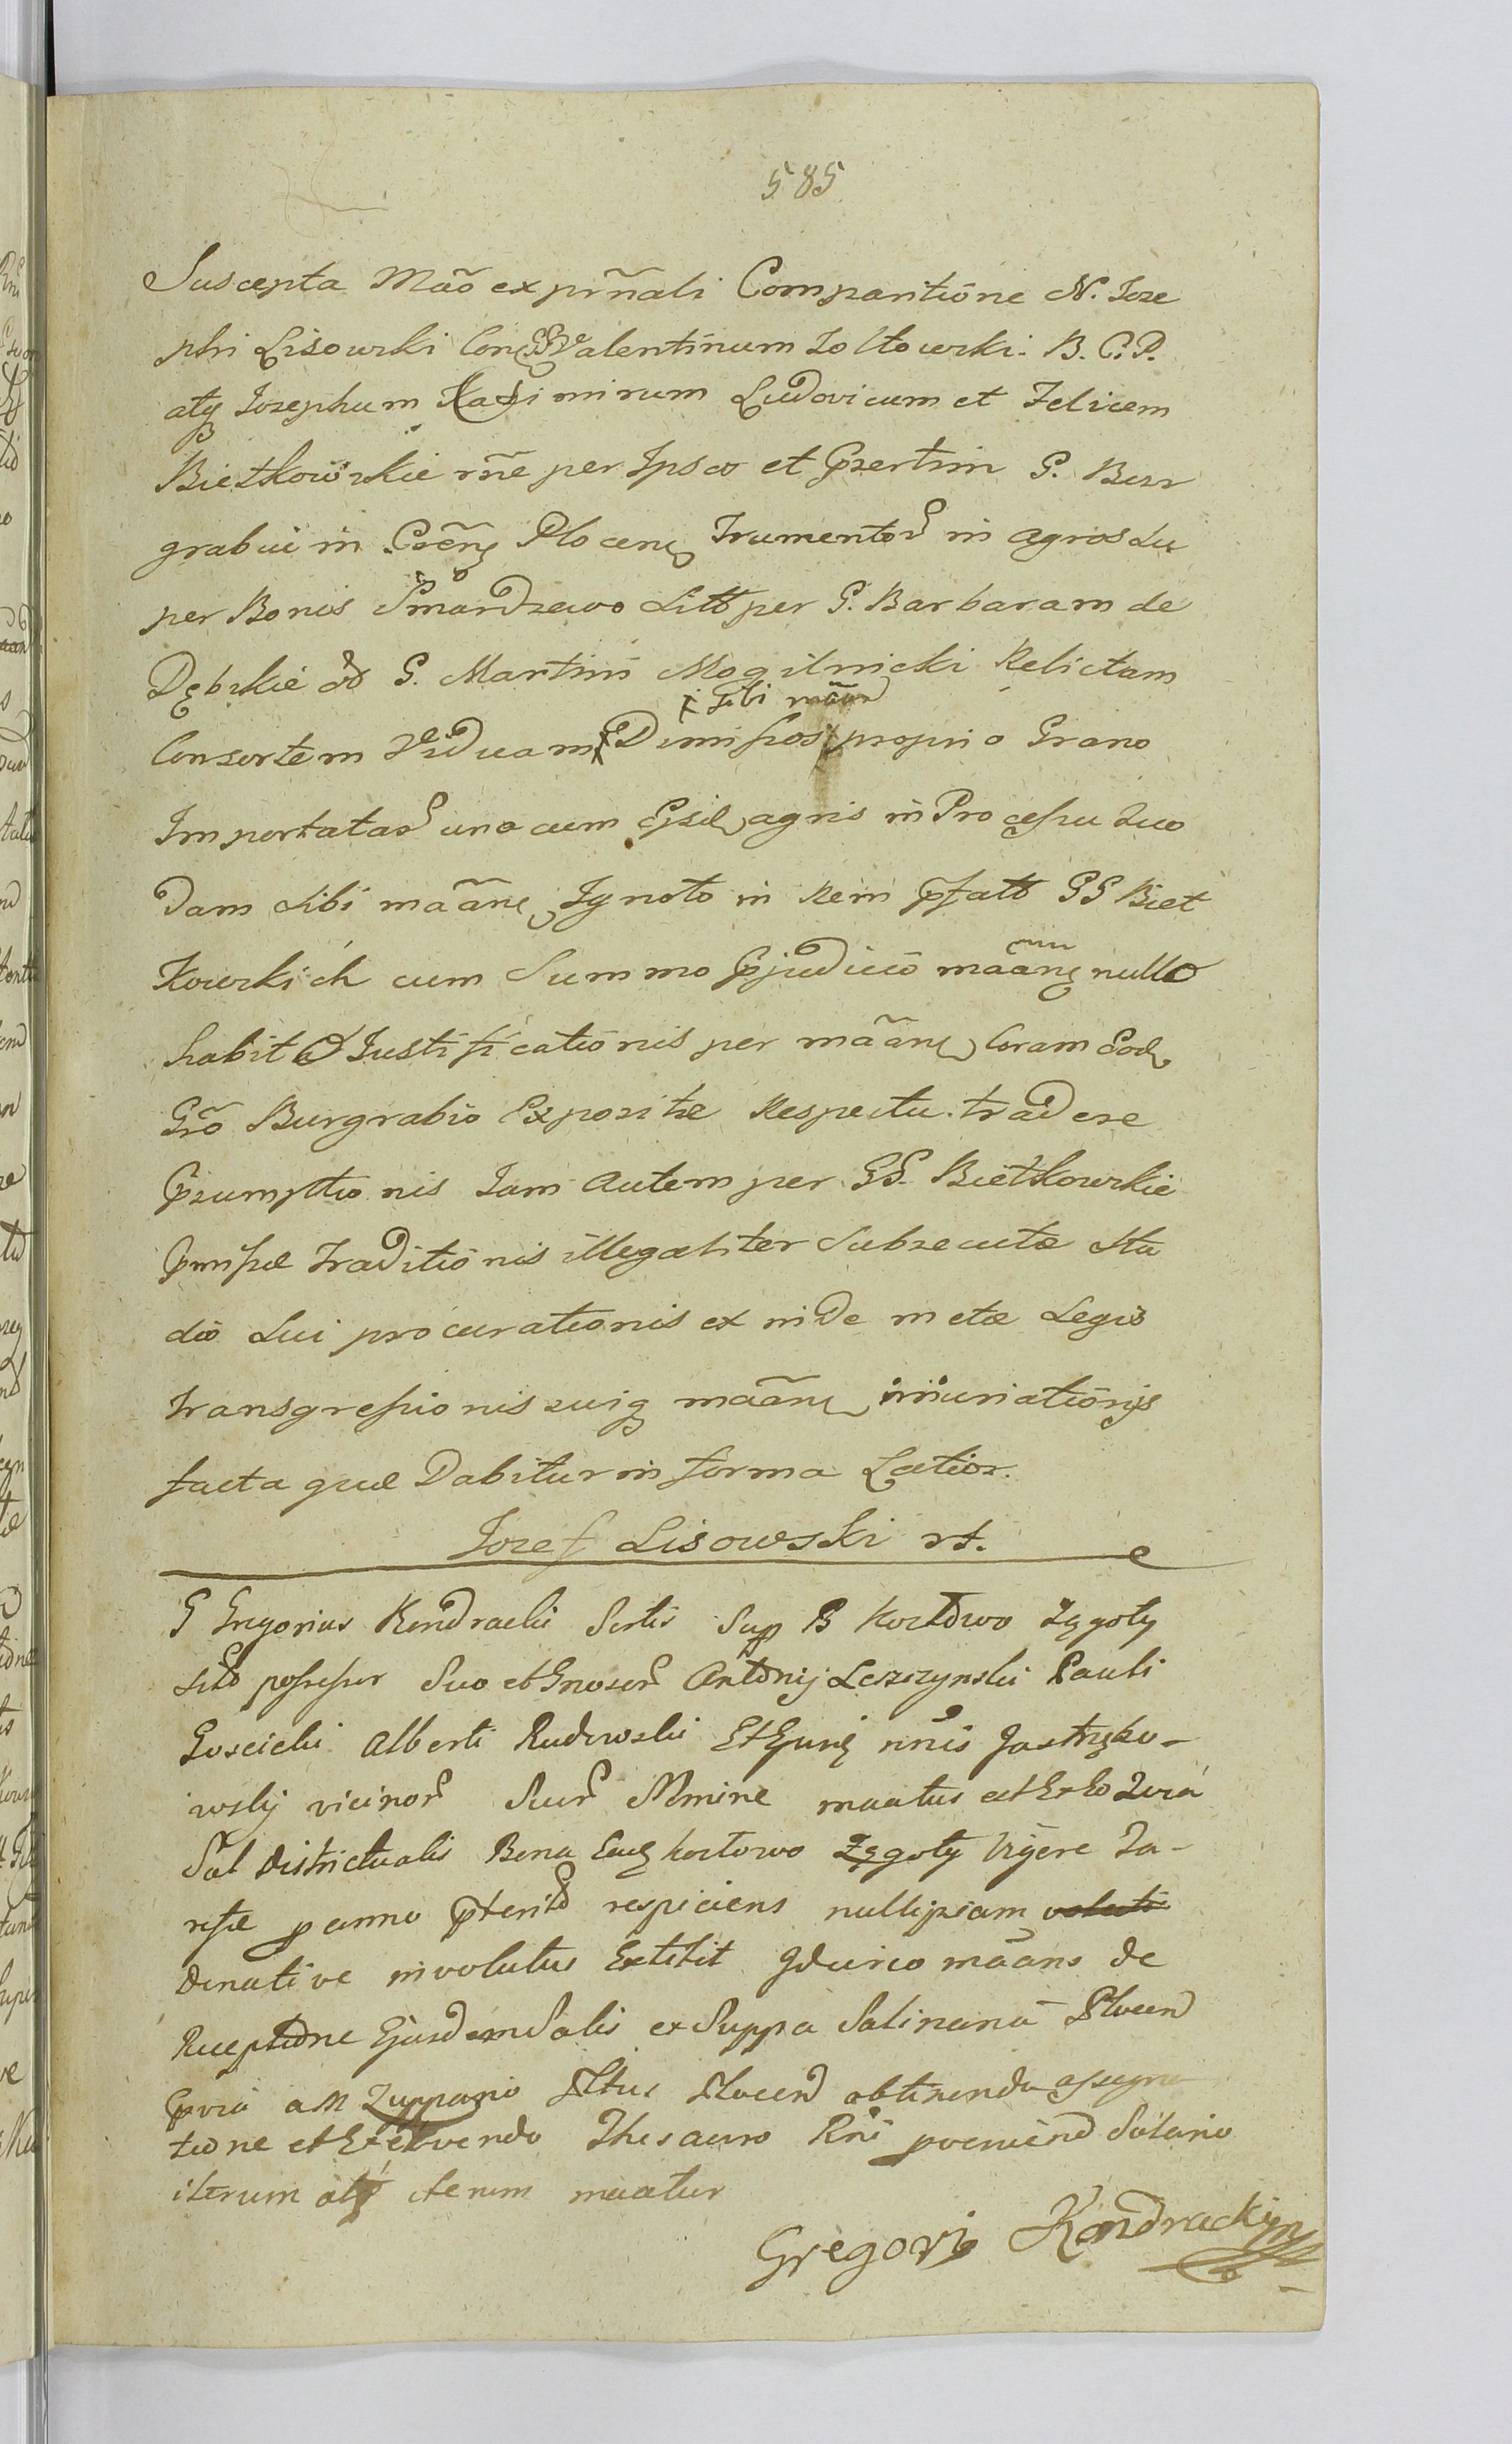 585
Suscepta Mão ex prñali Comparitione N. Joze
phi Lisowski Con GG Valentinum Zołtowski. B. C. P.
atq Josephum Kazimirum Ludovicum et Felicem
Bietkowskie rñe per Ipsos et Prsertim G. Bur
grabui in Crêñ Plocens Frumentor in agros Su
per Bonis Smardzewo Sitto per G. Barbaram de
Dębskie od G. Martini Mogilnicki Relictam
Consortem Viduam Dimissos proprio Grano
x Sibi mãnd
Importatar una cum ejsd agris in Processu Quo
Dam Sibi mãans Ignoto in Rem Pfatt GG Biet
Kowskich cum Summo Pjudicio mãans nulla
habita Justificationis per mãans Coram Eod
Grõ Burgrabio Expositæ Respectu. tradere
Przumptionis Jam Autem per GG. Bietkowskie
Pmissæ Traditionis illegaliter Subsecutæ Stu
dio Sui procurationis ex nide metæ Legis
transgressionis suiq mãans iniuriationis
facta quæ Dabitur in forma Latior.
Jozef Lisowski rt.
G Gregorius Kendracki Sortis Sup B Kozłowo Zggoty
Sitto possessor Suo et Gnosor Antonij Leszczynski Pauli
Goscicki Alberti Rudowski Et nñis Jastrzębo-
wskij vicinor Suor Nomine maatus est Exto Quia
Sal Districtualis Bona Kozłowo Zggoty Vigere Ta-
riffæ p anno Pterito respiciens nullipiam
Denative involutus Extitit Iduirco mãans de
Receptione Ejusdem Salis ex Suppa Salinaria Plocend
Pvia a M Zuppario Pltus Plocend obtinenda assigna
tione et Exolvendo Thesauro Rñi pveniend Solario
iterum atq iterum maatur
Gregori Kendracki